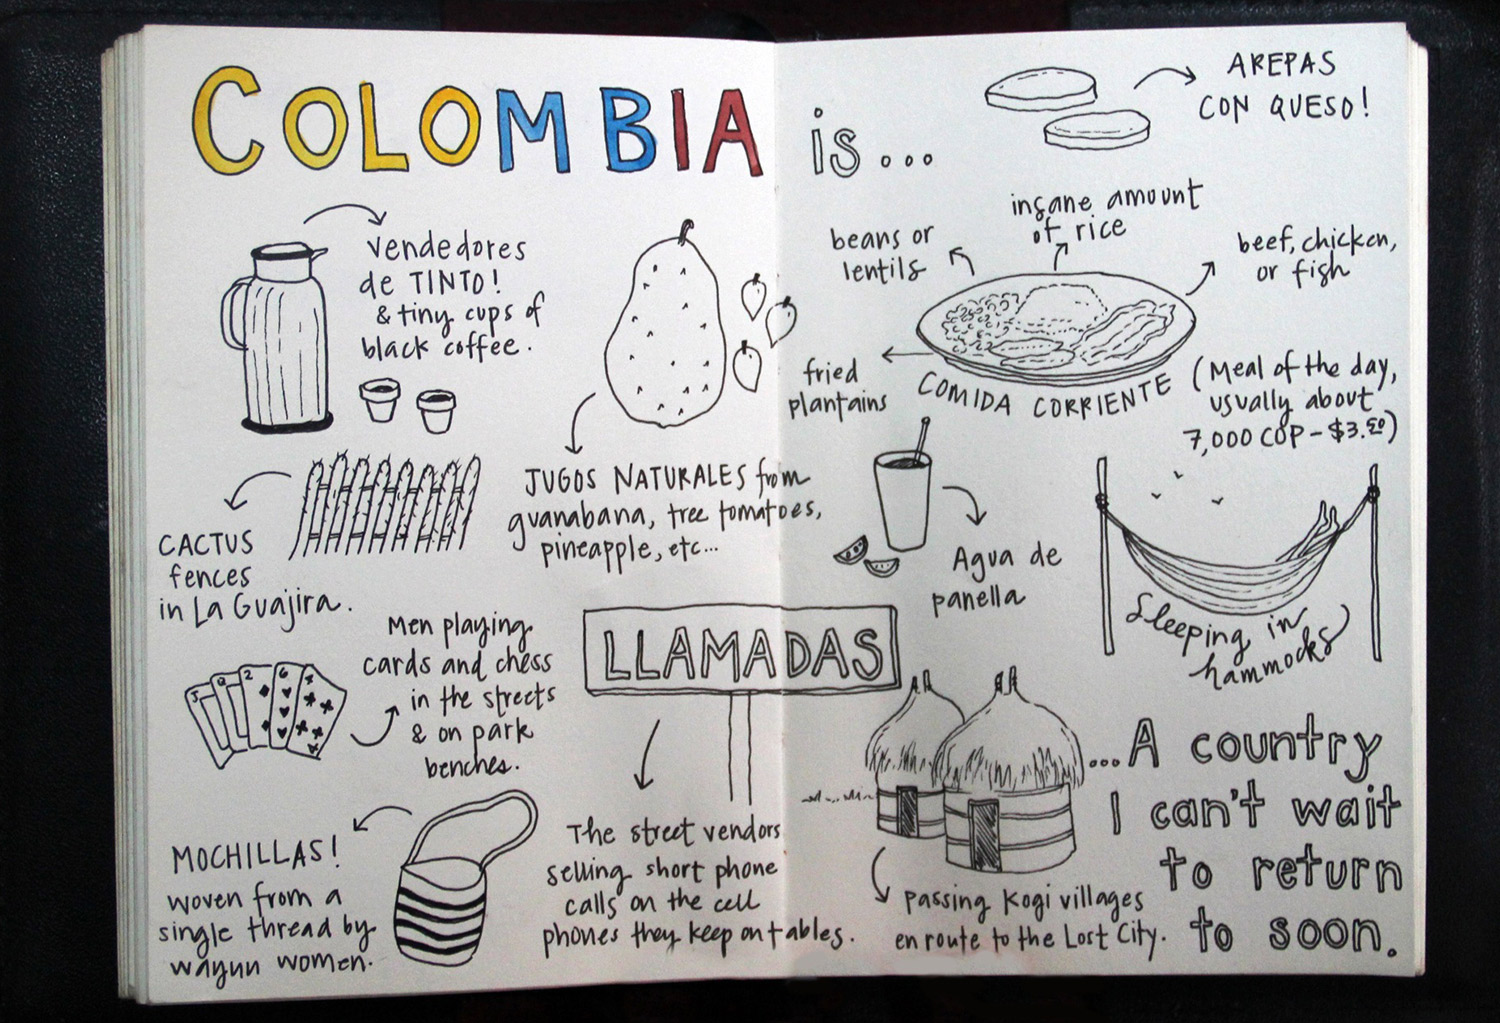 COLOMBIA is...
AREPAS
CON QUESO!
vendedores
de TINTO!
& tiny cups of
black coffee.
JUGOS NATURALES from
guanabana, tree tomatoes,
pineapple, etc...
CACTUS
fences
in La Guajira.
Men playing
cards and chess
in the streets
& on park
benches.
MOCHILLAS!
woven from a
single thread by
wayuu women.
LLAMADAS
The street vendors
selling short phone
calls on the cell
phones they keep on tables.
beans or
lentils
insane amount
of rice
beef, chicken,
or fish
fried
plantains
COMIDA CORRIENTE
(Meal of the day,
usually about
7,000 COP - $3.50)
Agua de
panella
Sleeping in
hammocks
passing Kogi villages
en route to the Lost City.
...A country
I can't wait
to return
to soon.